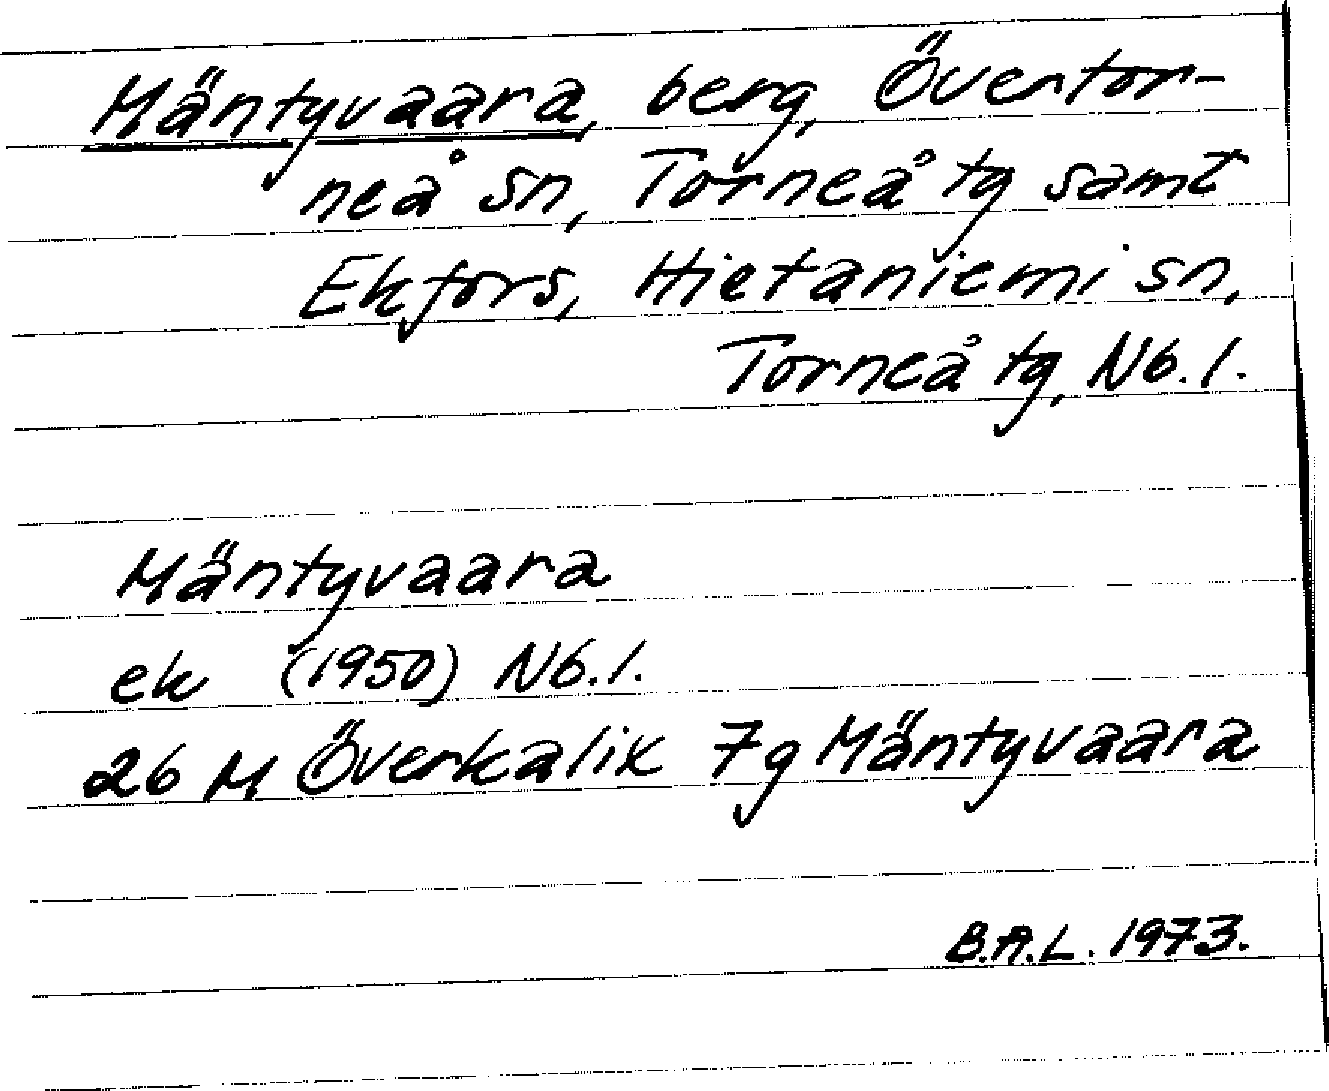 Mäntyvaara, berg, Övertor-
neå sn, Torneå tg samt
Ekfors, Hietaniemi sn,
Torneå tg, Nb.l.
Mäntyvaara
ek (1950) Nb.l.
26 M Överkalix 7g Mäntyvaara
B.A.L. 1973.